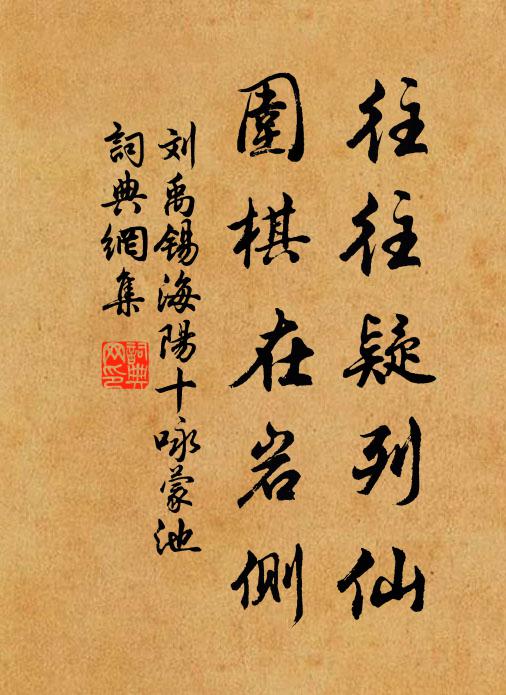 往往疑列仙
圍棋在岩侧
刘禹锡海陽十咏蒙池
詞典網集
詞典網印